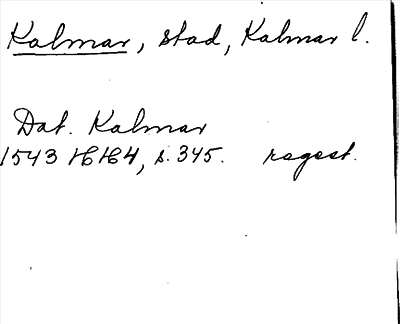 Kalmar, stad, Kalmar l.
Dat. Kalmar
1543 HH4, s. 345. regest.